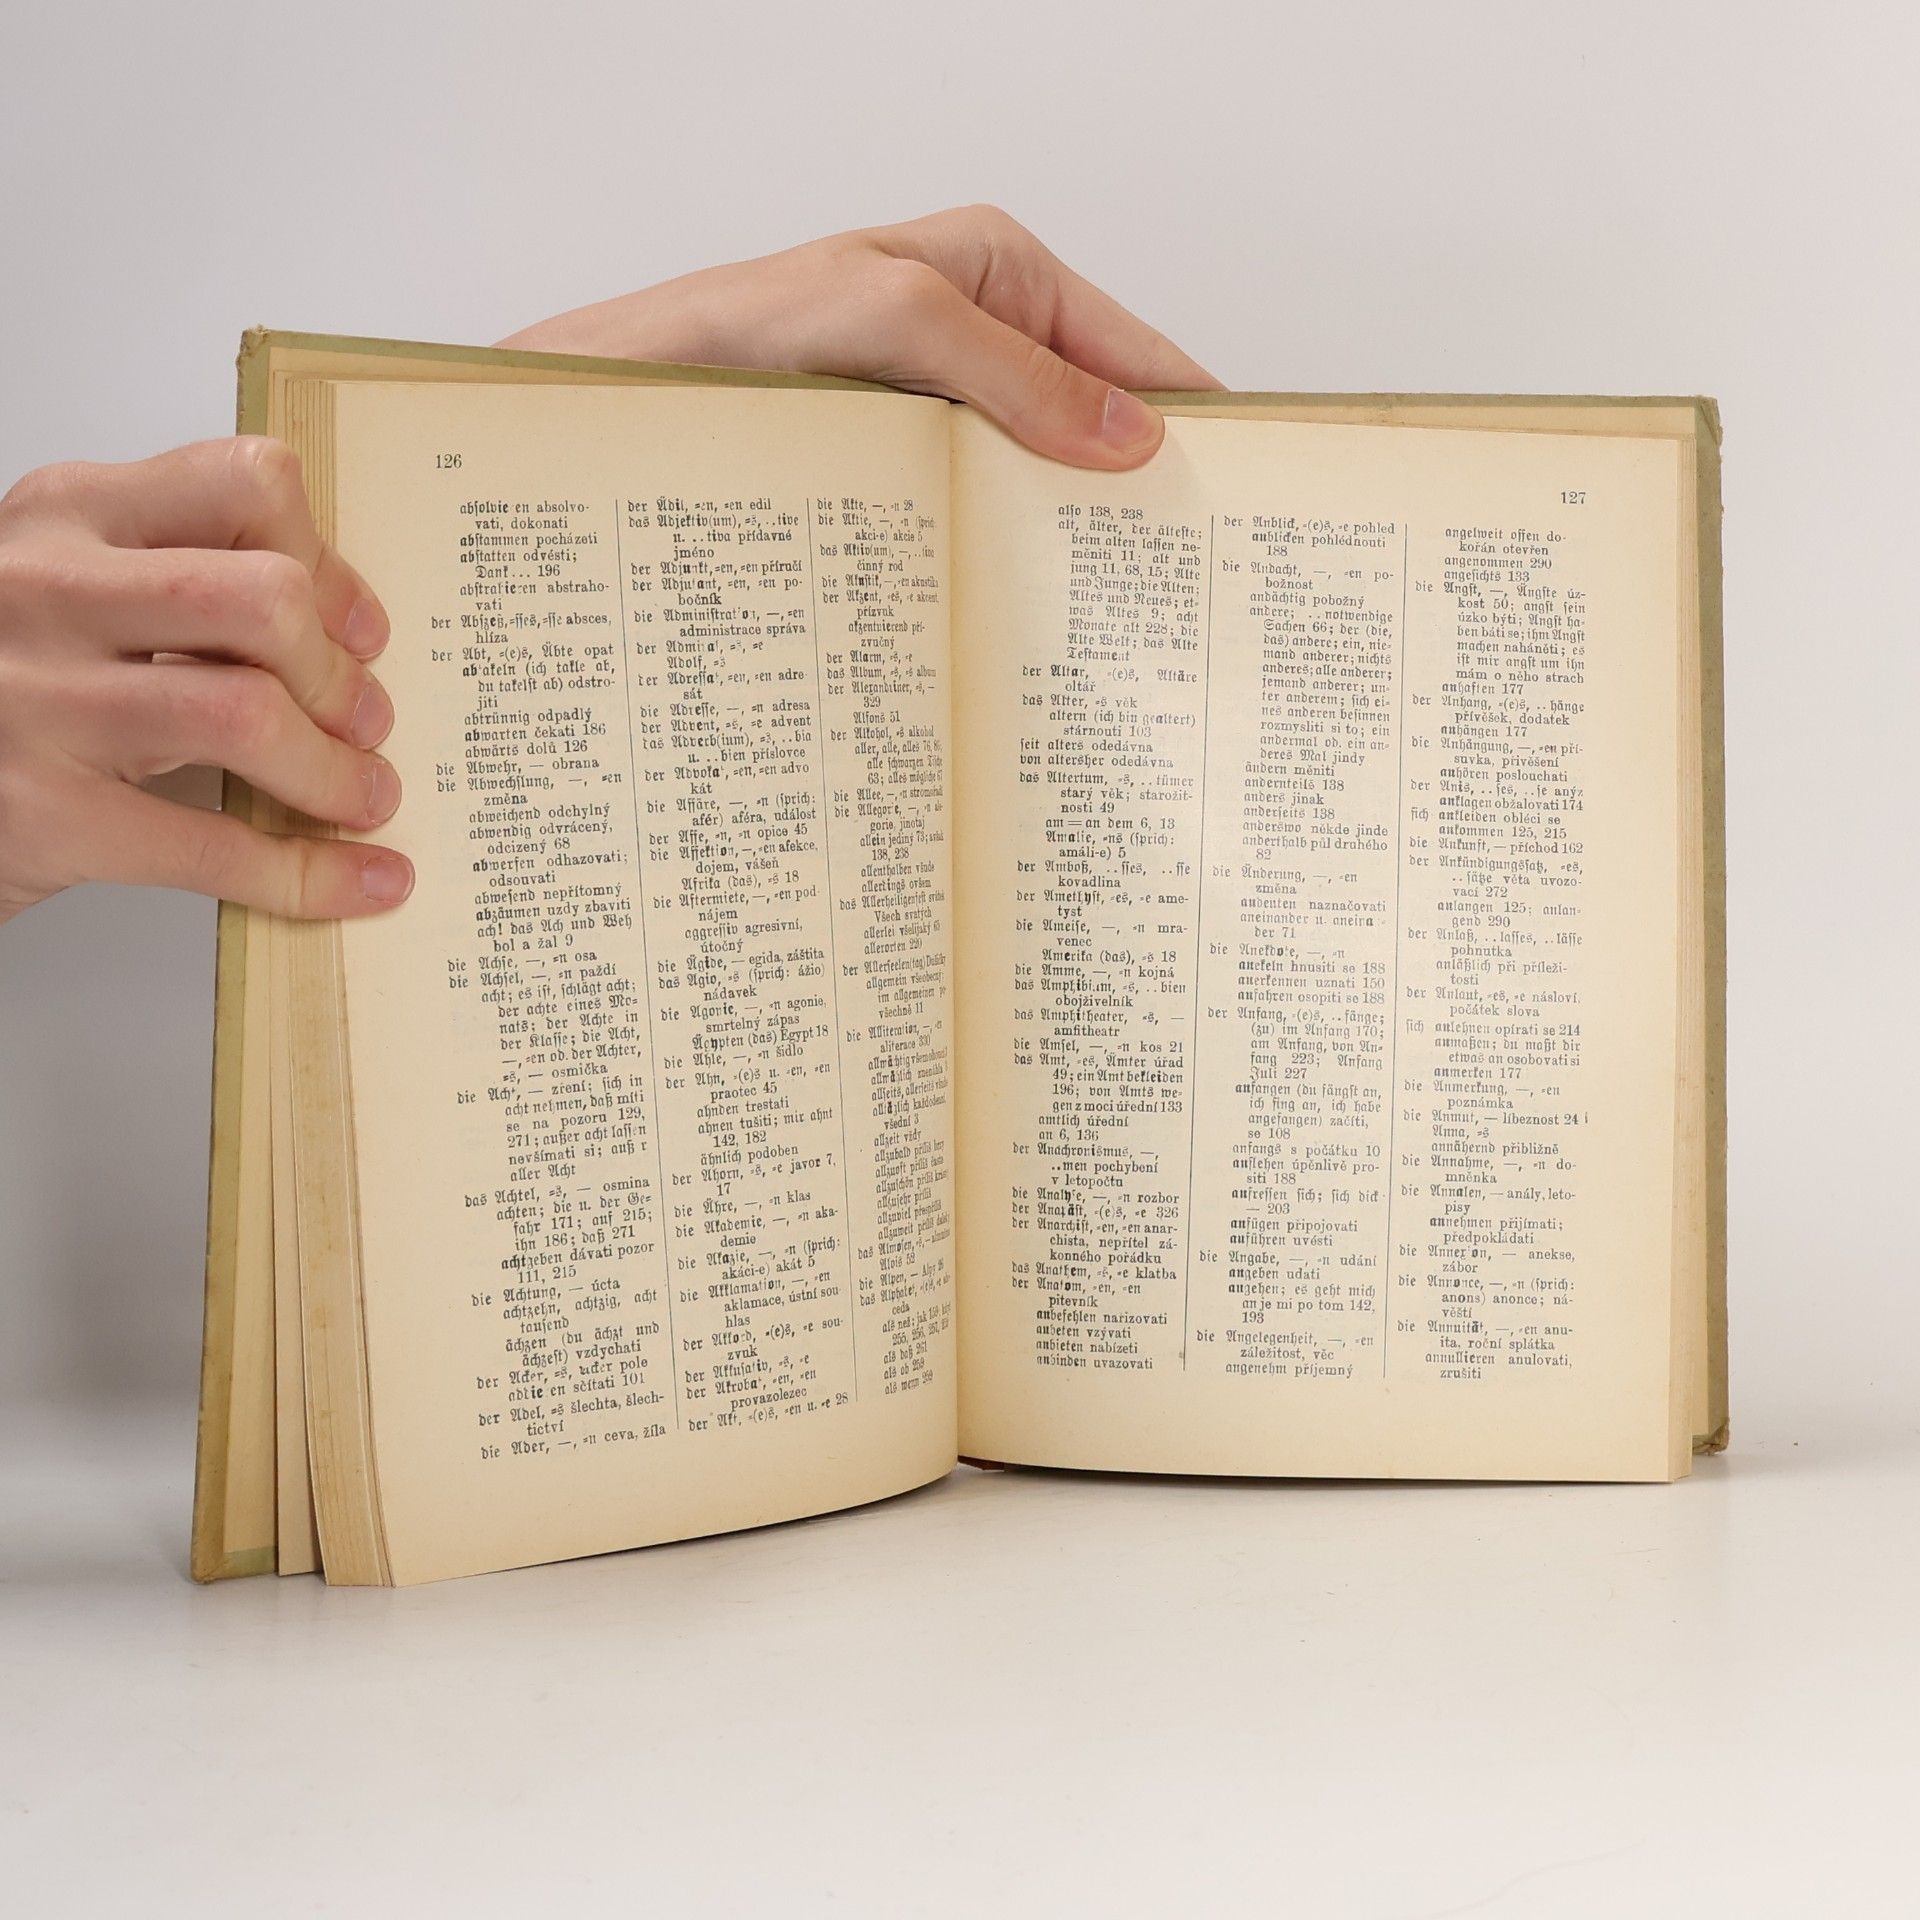 126
absolvieren absolvo-
vati, dokonati
abstammen pocházeti
abstatten odvésti;
Dank... 196
abstrahieren abstraho-
vati
der Abszeß, =sses, =sse absces,
hlíza
der Abt, =(e)s, Äbte opat
abtakeln (ich takle ab,
du takelst ab) odstro-
jiti
abtrünnig odpadlý
abwarten čekati 186
abwärts dolů 126
die Abwehr, — obrana
die Abwechslung, —, =en
změna
abweichend odchylný
abwendig odvrácený,
odcizený 68
abwerfen odhazovati;
odsouvati
abwesend nepřítomný
abzäumen uzdy zbaviti
ach! das Ach und Weh
bol a žal 9
die Achse, —, =n osa
die Achsel, —, =n paždí
acht; es ist, schlägt acht;
der achte eines Mo=
nats; der Achte in
der Klasse; die Acht,
—, =en od. der Achter,
=s, — osmička
die Acht, — zření; sich in
acht nehmen, daß míti
se na pozoru 129,
271; außer acht lassen
nevšímati si; auß r
aller Acht
das Achtel, =s, — osmina
achten; die u. der Ge=
fahr 171; auf 215;
ihn 186; daß 271
achtgeben dávati pozor
111, 215
die Achtung, — úcta
achtzehn, achtzig, acht
tausend
ächzen (du ächzt und
ächzest) vzdychati
der Acker, =s, Äcker pole
addieren sčítati 101
der Adel, =s šlechta, šlech-
tictví
die Ader, —, =n ceva, žíla
der Ädil, =en, =en edil
das Adjektiv(um), =s, ..tive
u. ..tiva přídavné
jméno
der Adjunkt, =en, =en příručí
der Adjutant, =en, =en po-
bočník
die Administration, —, =en
administrace správa
der Admiral, =s, =e
Adolf, =s
der Adressat, =en, =en adre-
sát
die Adresse, —, =n adresa
der Advent, =s, =e advent
das Adverb(ium), =s, ..bia
u. ..bien příslovce
der Advokat, =en, =en advo
kát
die Affäre, —, =n (sprich:
afér) aféra, událost
der Affe, =n, =n opice 45
die Affektion, —, =en afekce,
dojem, vášeň
Afrika (das), =s 18
die Aftermiete, —, =en pod-
nájem
aggressiv agresivní,
útočný
die Ägide, — egida, záštita
das Agio, =s (sprich: ážio)
nádavek
die Agonie, —, =n agonie,
smrtelný zápas
Ägypten (das) Egypt 18
die Ahle, —, =n šídlo
der Ahn, =(e)s u. =en, =en
praotec 45
ahnden trestati
ahnen tušiti; mir ahnt
142, 182
ähnlich podoben
der Ahorn, =s, =e javor 7,
17
die Ähre, —, =n klas
die Akademie, —, =n aka-
demie
die Akazie, —, =n (sprich:
akáci-e) akát 5
die Akklamation, —, =en
aklamace, ústní sou-
hlas
der Akkord, =(e)s, =e sou-
zvuk
der Akkusativ, =s, =e
der Akrobat, =en, =en
provazolezec
der Akt, =(e)s, =en u. =e 28
die Akte, —, =n 28
die Aktie, —, =n (sprich:
akci-e) akcie 5
das Aktiv(um), —, ..tiva
činný rod
die Akustik, —, =en akustika
der Akzent, =es, =e akcent,
přízvuk
akzentuierend pří-
zvučný
der Alarm, =s, =e
das Album, =s, =s album
der Alexandriner, =s, —
329
Alfons 51
der Alkohol, =s alkohol
aller, alle, alles 76, 86;
alle schwarzen Tische
63; alles mögliche 67
die Allee, —, =n stromořadí
die Allegorie, —, =n ale-
gorie, jinotaj
allein jediný 73; avšak
138, 238
allenthalben všude
allerdings ovšem
das Allerheiligenfest svátek
Všech svatých
allerlei všelijaký 65
allerorten 220
der Allerseelen(tag) Dušičky
allgemein všeobecný;
im allgemeinen po-
všechně 11
die Alliteration, —, =en
aliterace 330
allmächtig všemohoucí
allmählich znenáhla
allseits, allerseits všude
alltäglich každodenní,
všední 3
allzeit vždy
allzubald příliš brzy
allzuoft příliš často
allzuschön příliš krásný
allzusehr příliš
allzuviel přespříliš
allzuweit příliš daleko
das Almosen, =s, — almužna
Alois 52
die Alpen, — Alpy 26
das Alphabet, =(e)s, =e abe-
ceda
als než; jak 159; když
255, 256, 257,
als daß 261
als ob 259
als wenn 259
127
also 138, 238
alt, älter, der älteste;
beim alten lassen ne-
měniti 11; alt und
jung 11, 68, 15; Alte
und Junge; die Alten;
Altes und Neues; et=
was Altes 9; acht
Monate alt 228; die
Alte Welt; das Alte
Testament
der Altar, =(e)s, Altäre
oltář
das Alter, =s věk
altern (ich bin gealtert)
stárnouti 103
seit alters odedávna
von altersher odedávna
das Altertum, =s, ..tümer
starý věk; starožit-
nosti 49
am = an dem 6, 13
Amalie, =ns (sprich:
amáli-e) 5
der Amboß, ..sses, ..sse
kovadlina
der Amethyst, =es, =e ame-
tyst
die Ameise, —, =n mra-
venec
Amerika (das), =s 18
die Amme, —, =n kojná
das Amphibium, =s, ..bien
obojživelník
das Amphitheater, =s, —
amfitheatr
die Amsel, —, =n kos 21
das Amt, =es, Ämter úřad
49; ein Amt bekleiden
196; von Amts we=
gen z moci úřední 133
amtlich úřední
an 6, 136
der Anachronismus, —,
..men pochybení
v letopočtu
die Analyse, —, =n rozbor
der Anapäst, =(e)s, =e 326
der Anarchist, =en, =en anar-
chista, nepřítel zá-
konného pořádku
das Anathem, =s, =e klatba
der Anatom, =en, =en
pitevník
anbefehlen nařizovati
anbeten vzývati
anbieten nabízeti
anbinden uvazovati
der Anblick, =(e)s, =e pohled
anblicken pohlédnouti
188
die Andacht, —, =en po-
božnost
andächtig pobožný
andere; .. notwendige
Sachen 66; der (die,
das) andere; ein, nie=
mand anderer; nichts
anderes; alle anderer;
jemand anderer; un=
ter anderem; sich ei=
nes anderen besinnen
rozmysliti si to; ein
andermal od. ein an=
deres Mal jindy
ändern měniti
andernteils 138
anders jinak
anderseits 138
anderswo někde jinde
anderthalb půl druhého
82
die Änderung, —, =en
změna
andeuten naznačovati
aneinander u. aneinan=
der 71
die Anekdote, —, =n
anekeln hnusiti se 188
anerkennen uznati 150
anfahren osopiti se 188
der Anfang, =(e)s, ..fänge;
(zu) im Anfang 170;
am Anfang, von An=
fang 223; Anfang
Juli 227
anfangen (du fängst an,
ich fing an, ich habe
angefangen) začíti,
se 108
anfangs s počátku 10
anflehen úpěnlivě pro-
siti 188
anfressen sich; sich dick
— 203
anfügen připojovati
anführen uvésti
die Angabe, —, =n udání
angeben udati
angehen; es geht mich
an je mi po tom 142,
193
die Angelegenheit, —, =en
záležitost, věc
angenehm příjemný
angelweit offen do-
kořán otevřen
angenommen 290
angesichts 133
die Angst, —, Ängste úz-
kost 50; angst sein
úzko býti; Angst ha=
ben báti se; ihm Angst
machen naháněti; es
ist mir angst um ihn
mám o něho strach
anhaften 177
der Anhang, =(e)s, ..hänge
přívěšek, dodatek
anhängen 177
die Anhängung, —, =en pří-
suvka, přivěšení
anhören poslouchati
der Anis, ..ses, ..se anýz
anklagen obžalovati 174
sich ankleiden obléci se
ankommen 125, 215
die Ankunft, — příchod 162
der Ankündigungssatz, =es,
..sätze věta uvozo-
vací 272
anlangen 125; anlan=
gend 290
der Anlaß, ..lasses, ..lässe
pohnutka
anläßlich při příleži-
tosti
der Anlaut, =es, =e násloví,
počátek slova
sich anlehnen opírati se 214
anmaßen; du maßt dir
etwas an osobovati si
anmerken 177
die Anmerkung, —, =en
poznámka
die Anmut, — líbeznost 24
Anna, =s
annähernd přibližně
die Annahme, —, =n do-
mněnka
die Annalen, — anály, leto-
pisy
annehmen přijímati;
předpokládati
die Annexion, — anekse,
zábor
die Annonce, —, =n (sprich:
anons) anonce; ná-
věští
die Annuität, —, =en anu-
ita, roční splátka
annullieren anulovati,
zrušiti